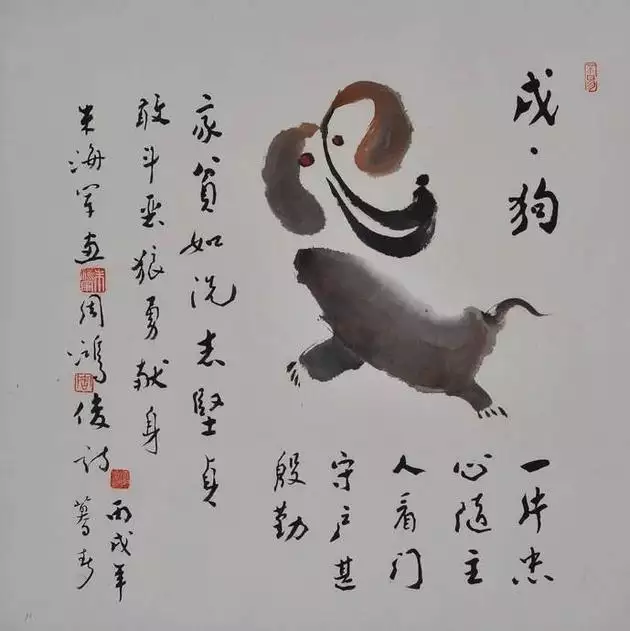 戌·狗
一片忠
心随主
人看门
守户甚
殷勤
家貧如洗志堅貞
敢斗恶狼勇献身
朱海军画 周鸿俊诗
丙戌年